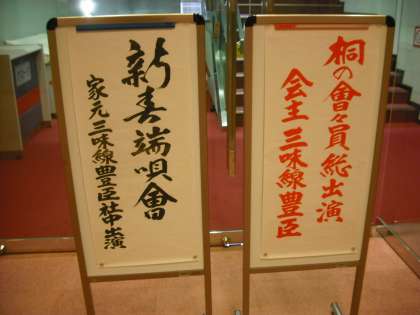 新春端唄會
家元三味線豊臣社中出演
桐の會々員総出演
会主三味線豊臣